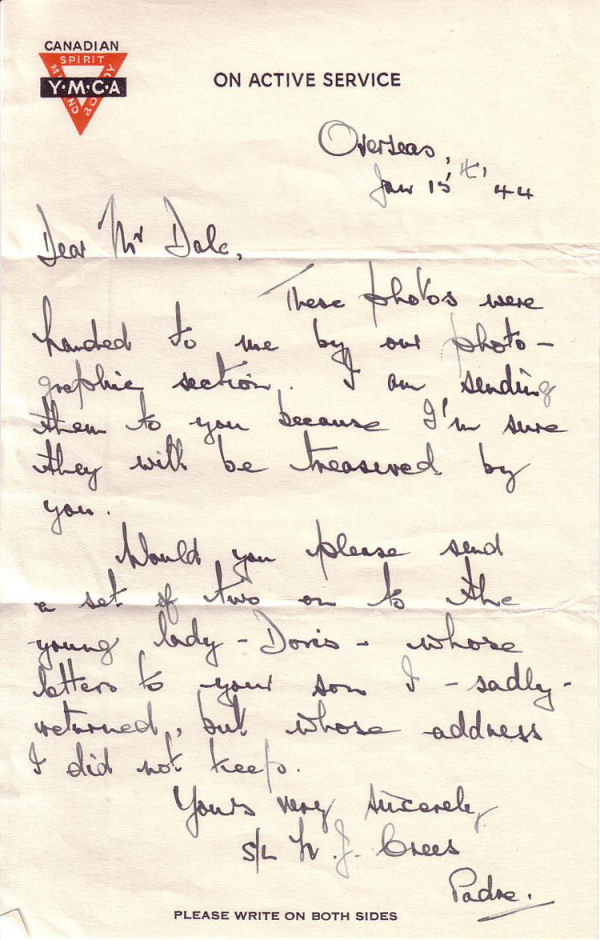 CANADIAN
SPIRIT
MIND BODY
Y·M·C·A
ON ACTIVE SERVICE
Overseas,
Jan 15th 44
Dear Mr Dale,
These photos were
handed to me by our photo-
graphic section. I am sending
them to you because I'm sure
they will be treasured by
you.
Would you please send
a set of two on to the
young lady - Doris - whose
letters to your son I - sadly -
returned, but whose address
I did not keep.
Yours very sincerely
S/L J. Crees
Padre.
PLEASE WRITE ON BOTH SIDES